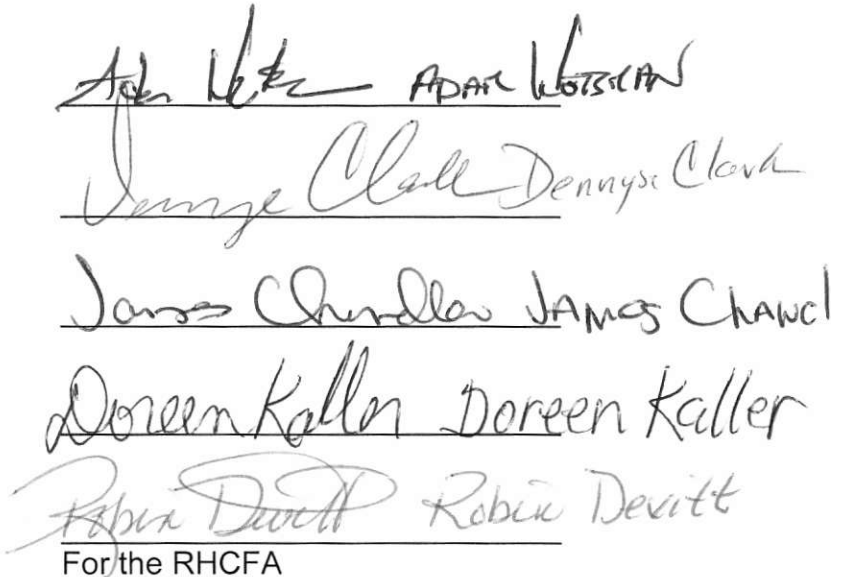 ADAM WETSMAN
Dennyse Clark Dennyse Clark
James Chandler JAMES CHAND
Doreen Kaller Doreen Kaller
Robin Devitt Robin Devitt
For the RHCFA